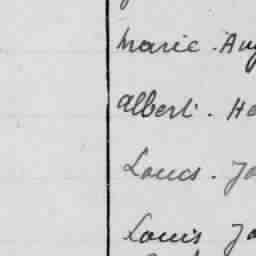 Marie. Aug
Albert. He
Louis. Jo
Louis Jo